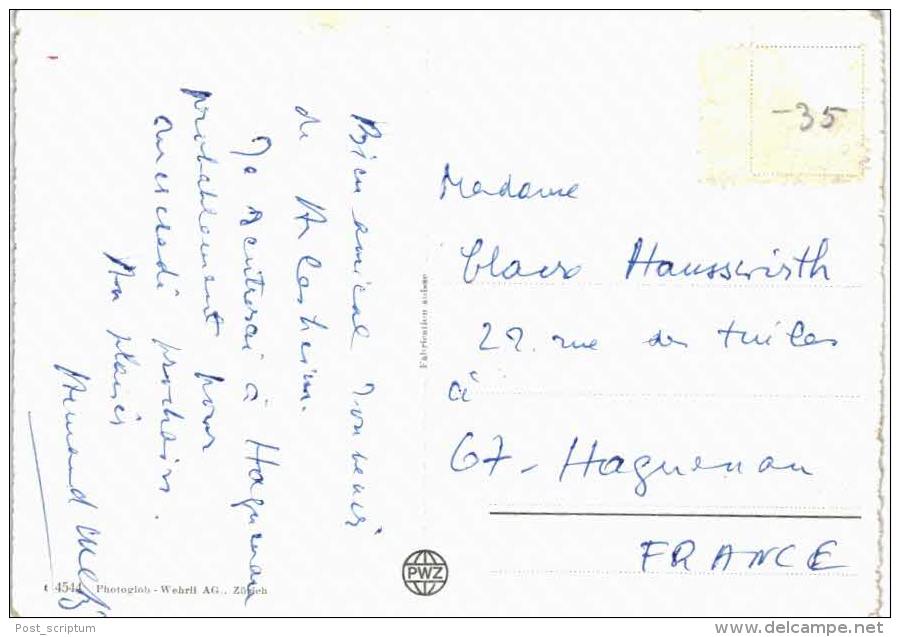 Bien amical souvenir
de
Je rentrerai à Haguenau
probablement pour
mercredi prochain.
Au plaisir
Armand
-35
Madame
Hausswirth
22. rue des tuiles
à
67-Haguenau
FRANCE
Fabrication suisse
PWZ
t 4544 Photoglob-Wehrli AG., Zürich
Post_scriptum
delcampe.net